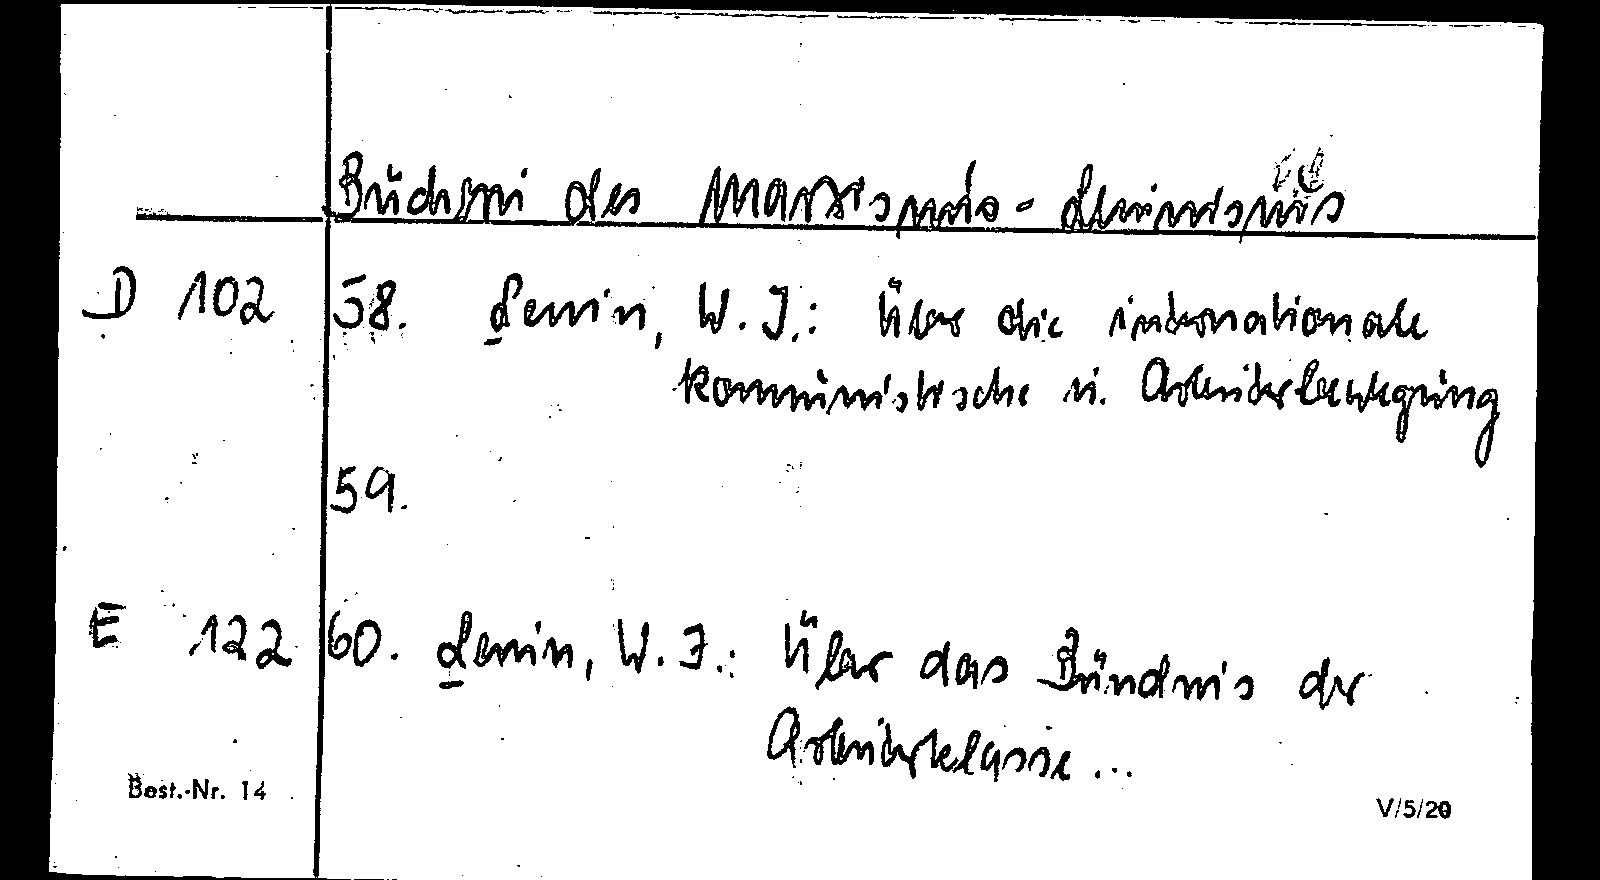 Bücherei des Marxismus-Leninismus
D 102 58. Lenin, W. I.: Über die internationale
kommunistische u. Arbeiterbewegung
59.
E 122 60. Lenin, W. I.: Über das Bündnis der
Arbeiterklasse...
Best.-Nr. 14
V/5/20